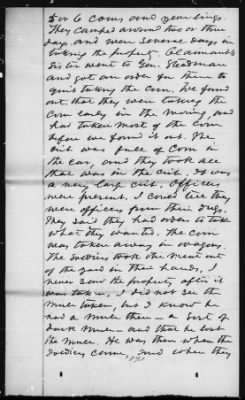 5 or 6 cows and yearlings.
They camped around two or three
days and were several days in
taking the property. Claimant's
sister went to Gen. Steadman
and got an order for them to
quit taking the corn. We found
out that they were taking the
corn early in the morning, and
had taken most of the corn
before we found it out. The
crib was full of corn in
the ear, and they took all
that was in the crib. It was
a very large crib. Officers
were present. I could tell they
were officers from their
They said they had orders to take
what they wanted. The corn
was taken away in wagons.
The soldiers took the meat out
of the yard in their hands. I
never saw the property after it
was taken. I did not see the
mule taken, but I know he
had a mule there — a sort of
dark mule — and that he lost
the mule. He was there when the
soldiers came, and when they